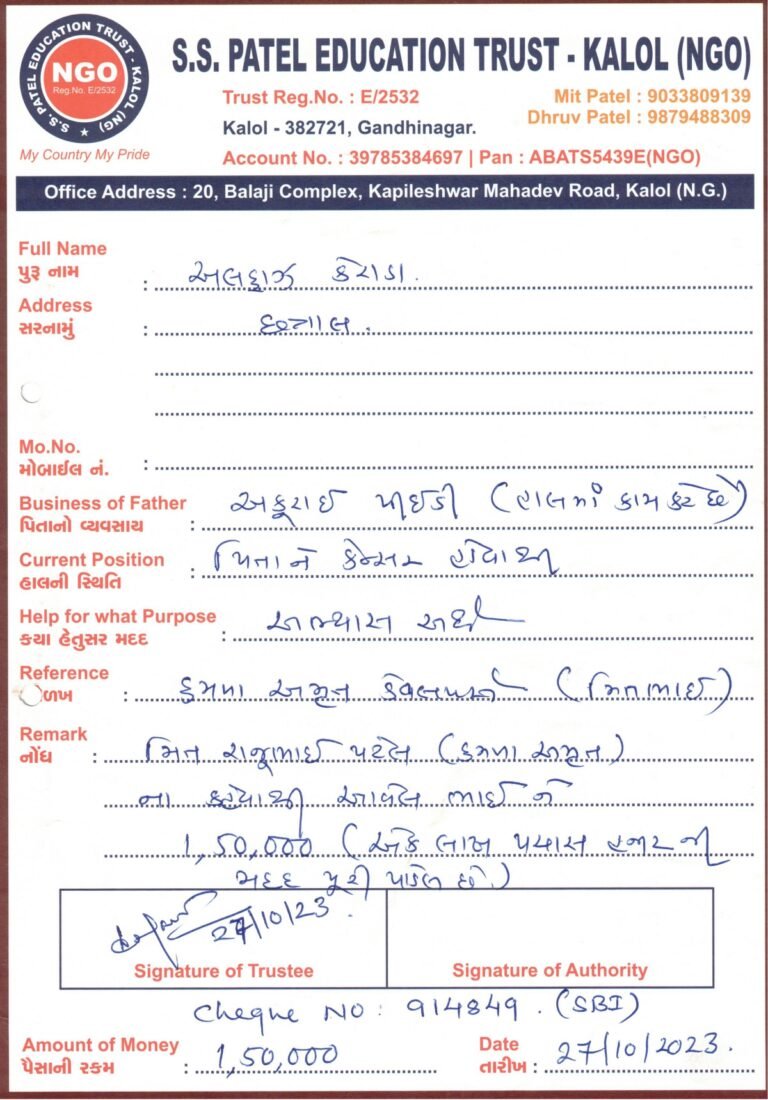 S.S. PATEL EDUCATION TRUST - KALOL (NG)
NGO
Reg.No. E/2532
My Country My Pride
S.S. PATEL EDUCATION TRUST - KALOL (NGO)
Trust Reg.No. : E/2532
Mit Patel : 9033809139
Kalol - 382721, Gandhinagar.
Dhruv Patel : 9879488309
Account No. : 39785384697 | Pan : ABATS5439E(NGO)
Office Address : 20, Balaji Complex, Kapileshwar Mahadev Road, Kalol (N.G.)
Full Name
પુરૂ નામ : અલફાઝ
Address
સરનામું :
Mo.No.
મોબાઈલ નં. :
Business of Father
પિતાનો વ્યવસાય : (હાલમાં કામ કરે છે)
Current Position
હાલની સ્થિતિ : પિતાને કેન્સર હોવાથી
Help for what Purpose
કયા હેતુસર મદદ : અભ્યાસ અર્થે
Reference
ળખ : અમૃત (મિતભાઈ)
Remark
નોંધ : મિત રાજુભાઈ પટેલ ( અમૃત)
ના આવેલ ભાઈ ને
1,50,000 (એક લાખ પચાસ હજાર ની
મદદ પૂરી પાડેલ છે.)
27/10/23
Signature of Trustee
Signature of Authority
Cheque NO : 914849 . (SBI)
Amount of Money
પૈસાની રકમ : 1,50,000
Date
તારીખ : 27/10/2023.